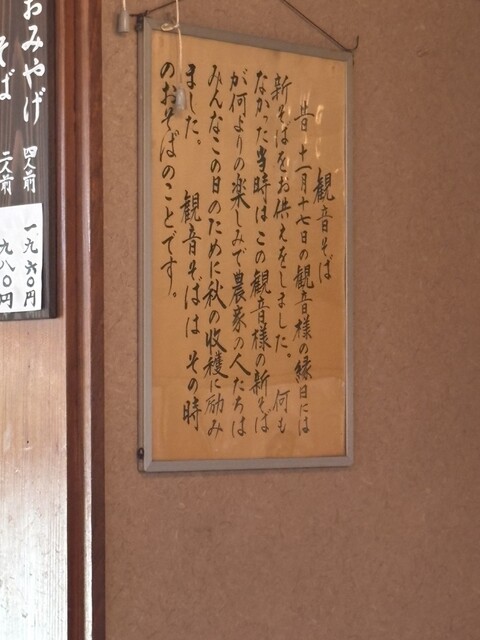 観音そば
昔 十一月十七日の観音様の縁日には
新そばをお供えをしました。 何も
なかった当時は この観音様の新そば
が何よりの楽しみで農家の人たちは
みんなこの日のために秋の収穫に励み
ました。 観音そばは その時
のおそばのことです。
おみやげ 四人前 一九六〇円
そば 二人前 九八〇円